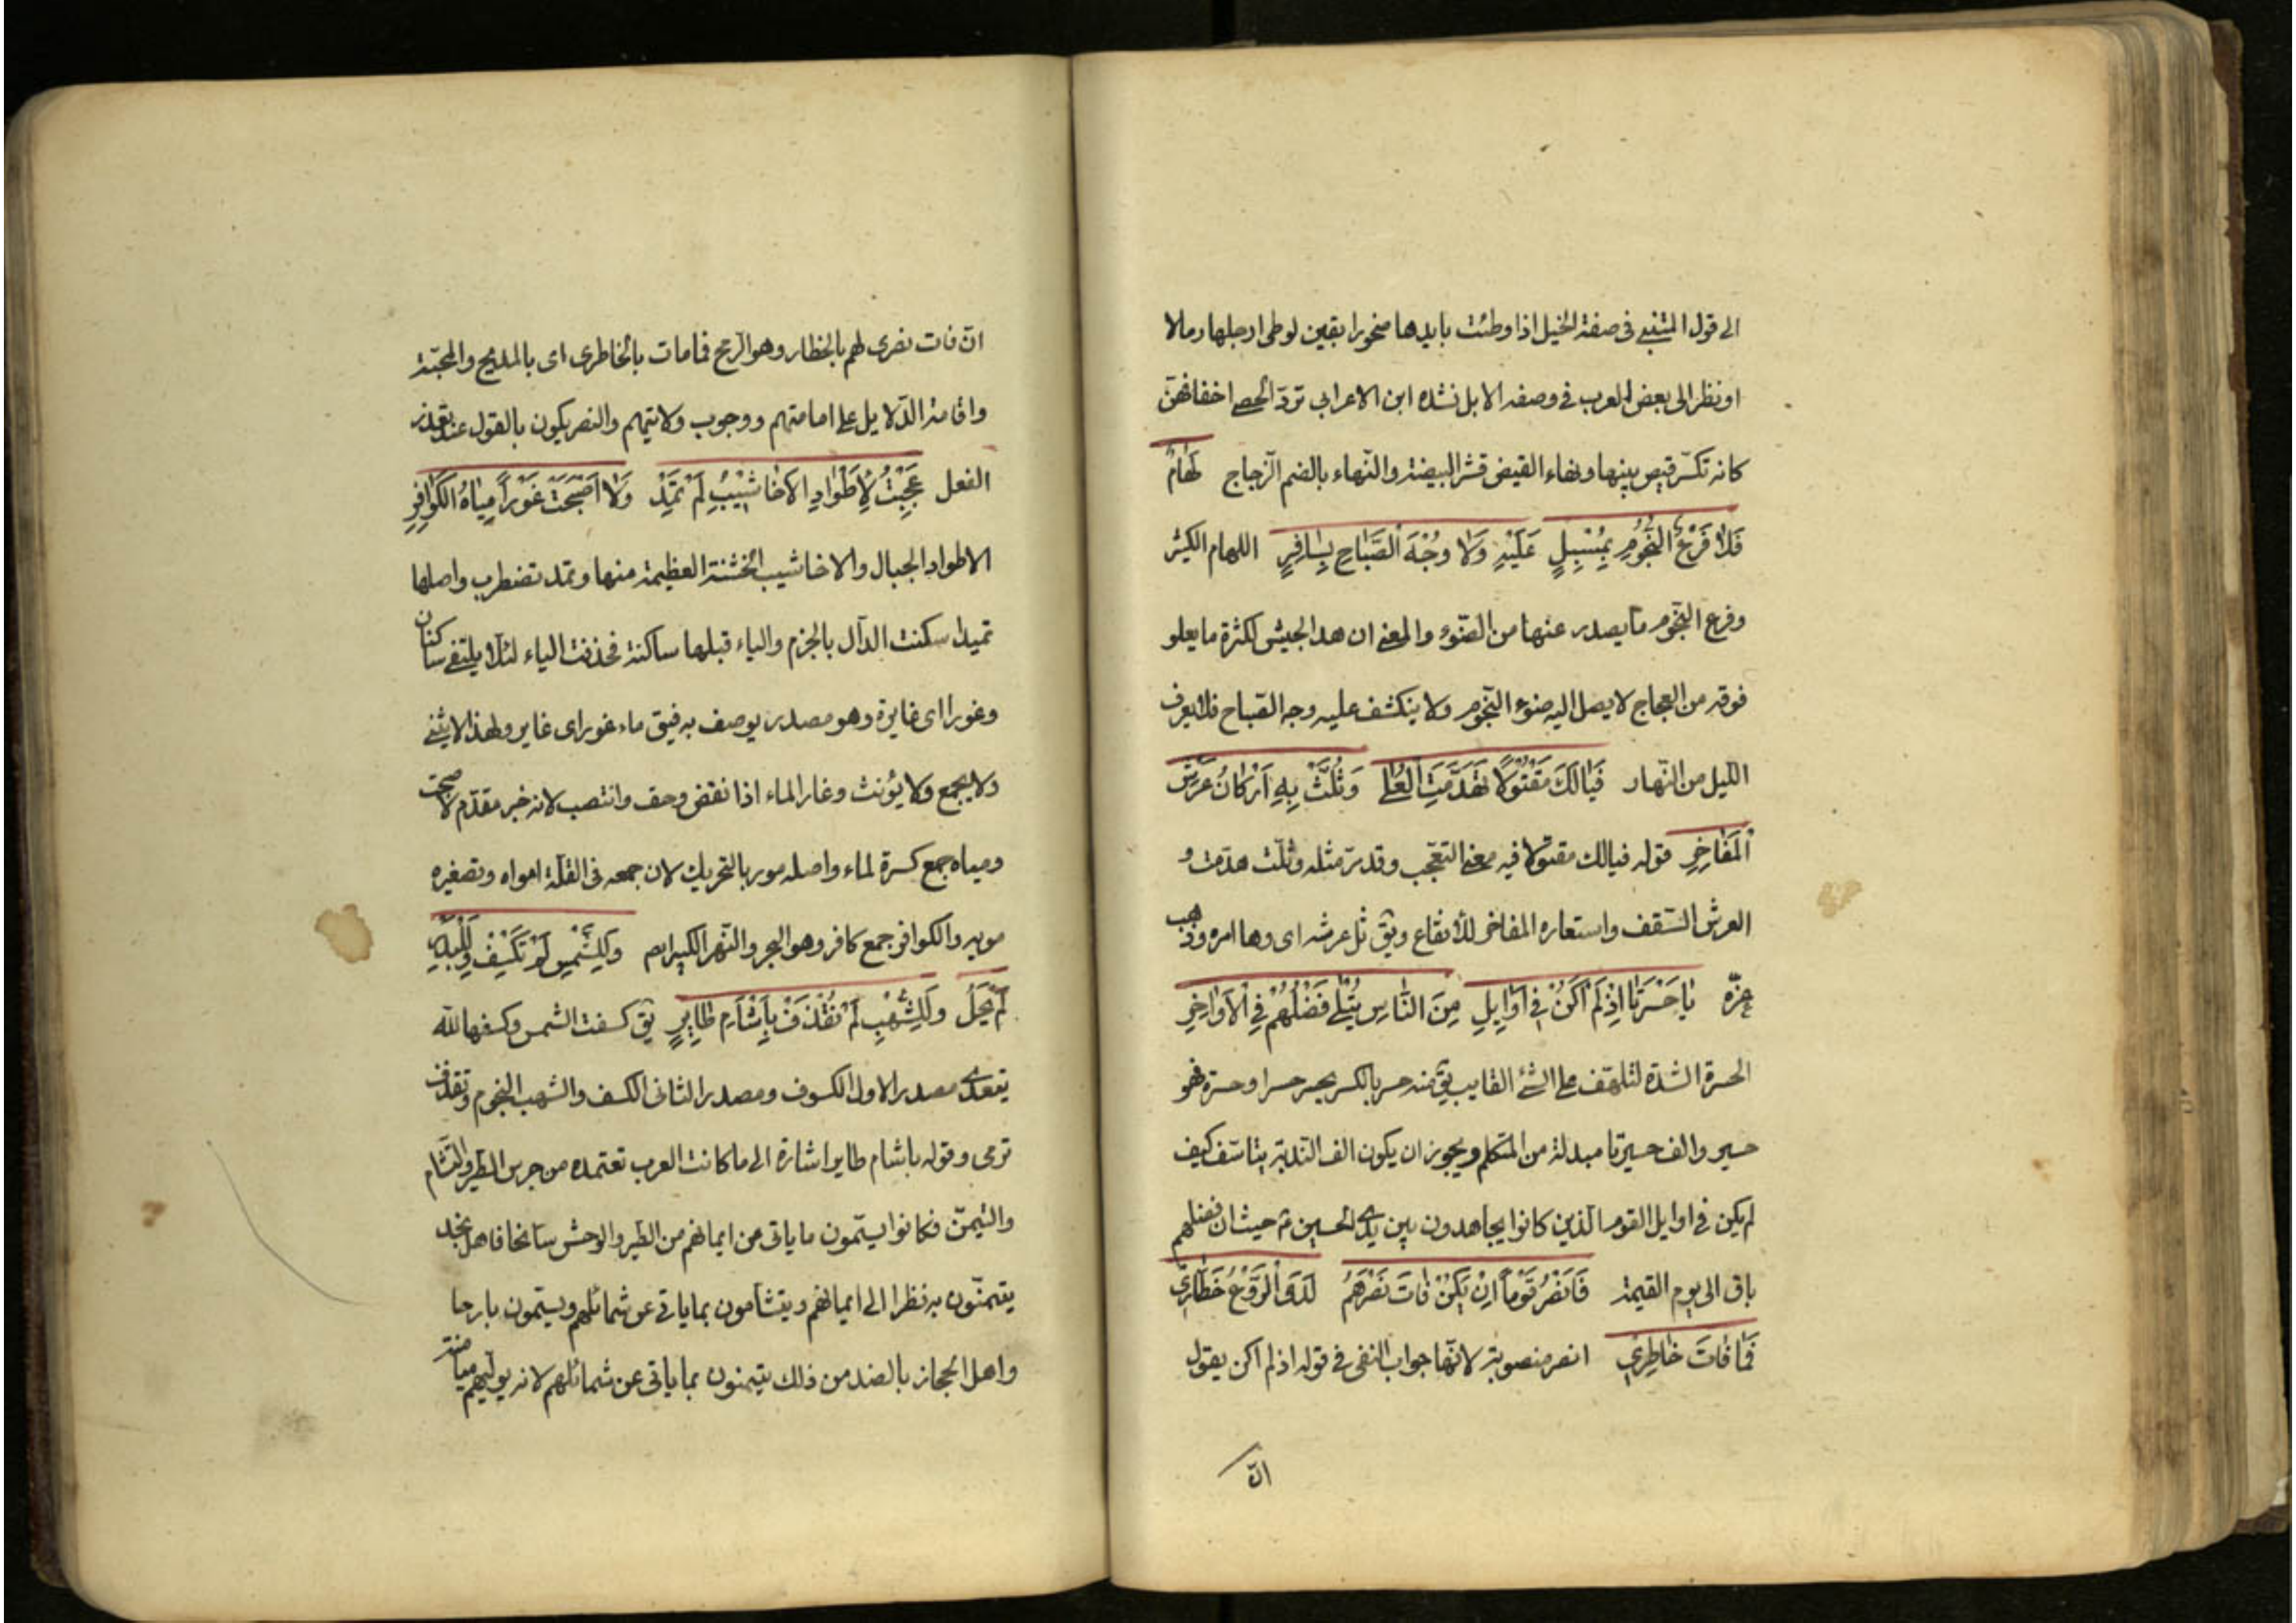 الى قول المتنبى فى صفة الخيل اذا وطئت بايدها صخورا بقين لوطى ارجلها رمالا
او نظر الى بعض العرب فى وصفه الابل نشده ابن الاعرابى تردّ الحصى اخفافهنّ
كانه تكسّر قيض بينها ونهاء القيض قشر البيضة والنّهاء بالضم الزجاج لُهَامٌ
فَلَا فَرْعُ النُّجُومِ بِمُسْبِلٍ عَلَيْهِ وَلَا وُجْهَ الصَّبَاحِ بِسَافِرٍ اللهام الكثير
وفرع النجوم ما يصدر عنها من الضّوء والمعنى ان هذا الجيش لكثرة ما يعلو
فوقه من العجاج لا يصل اليه ضوء النجوم ولا ينكشف عليه وجه الصّباح فلا يعرف
الليل من النّهار فَيَالَكَ مَقْتُولًا تَهَدَّمَتِ الْعُلَى وَثُلَّتْ بِهِ اَرْكَانُ عَرْشِ
الْمَفَاخِرِ قوله فيالك مقتولا فيه معنى التعجّب وقد مرّ مثله وثلّت هدّمت و
العرش السّقف واستعاره المفاخر للارتفاع ويق ثل عرشه اى وها امره وذهب
عزّه يَا حَسْرَتَا اِذْ لَمْ اَكُنْ فِى اَوَايِلِ مِنَ النَّاسِ يُتْلَى فَضْلُهُمْ فِى الْاَوَاخِرِ
الحسرة الشدة لتلهّف على الشئ الفايت يق منه حسر بالكسر يحسر حسرا وحسرة فهو
حسير والف حسرتا مبدلة من المتكلم ويجوز ان يكون الف الندبة يتاسّف كيف
لم يكن فى اوايل القوم الذين كانوا يجاهدون بين يدى الحسين ع حيث ان فضلهم
باق الى يوم القيمة فَاَنْصُرُ قَوْمًا اِنْ يَكُنْ فَاتَ نَصْرُهُمْ لَدَى الرَّوْعِ خَطَّارِى
فَمَا فَاتَ خَاطِرِى انصر منصوبة لانّها جواب النفى فى قوله اذ لم اكن يقول
انّ
انّ فات نصرى لهم بالخطار وهو الرّمح فما مات بالخاطرى اى بالمديح والمحبّة
واقامة الدّلايل على امامتهم ووجوب ولايتهم والنصر يكون بالقول عند تعذر
الفعل عَجِبْتُ لِاَطْوَادِ الْاَخَاشِيْبِ لَمْ تَمِدْ وَلَا اَصْبَحَتْ غَوْرًا مِيَاهُ الْكَوَافِرِ
الاطواد الجبال والاخاشيب الخشنة العظيمة منها وتمد تضطرب واصلها
تميد سكنت الدّال بالجزم والياء قبلها ساكنة فحذفت الياء لئلا يلتقى ساكنان
وغورا اى غايرة وهو مصدر يوصف به فيق ماء غور اى غاير ولهذا لا يثنى
ولا يجمع ولا يؤنث وغار الماء اذا نقض وجف وانتصب لانه خبر مقدّم لاصبحت
ومياه جمع كسرة لماء واصله موه بالتحريك لان جمعه فى القلّة امواه وتصغيره
مويه والكوافر جمع كافر وهو البحر والنّهر الكبير ايم وَلِلشَّمْسِ لَمْ تَكْسِفْ وَلِلْبَدْرِ
لَمْ يَحُلْ وَلِلشُّهْبِ لَمْ تُقْذَفْ بِاَشْاَمِ طَايِرٍ يق كسفت الشمس وكسفها الله
يتعدى مصدر الاول الكسوف ومصدر الثانى الكسف والشهب النجوم وتقذف
ترمى وقوله باشام طاير اشارة الى ما كانت العرب تعتمده من جرس الطير والتشام
والتيمّن فكانوا يسمّون ما ياتى من ايمانهم من الطير والوحش سانحا فاهل نجد
يتيمّنون به نظرا الى ايمانهم ويتشامون بما ياتى عن شمائلهم ويسمّون بارحا
واهل الحجاز بالضد من ذلك يتيمنون بما ياتى عن شمائلهم لانه يوليهم ميامنه